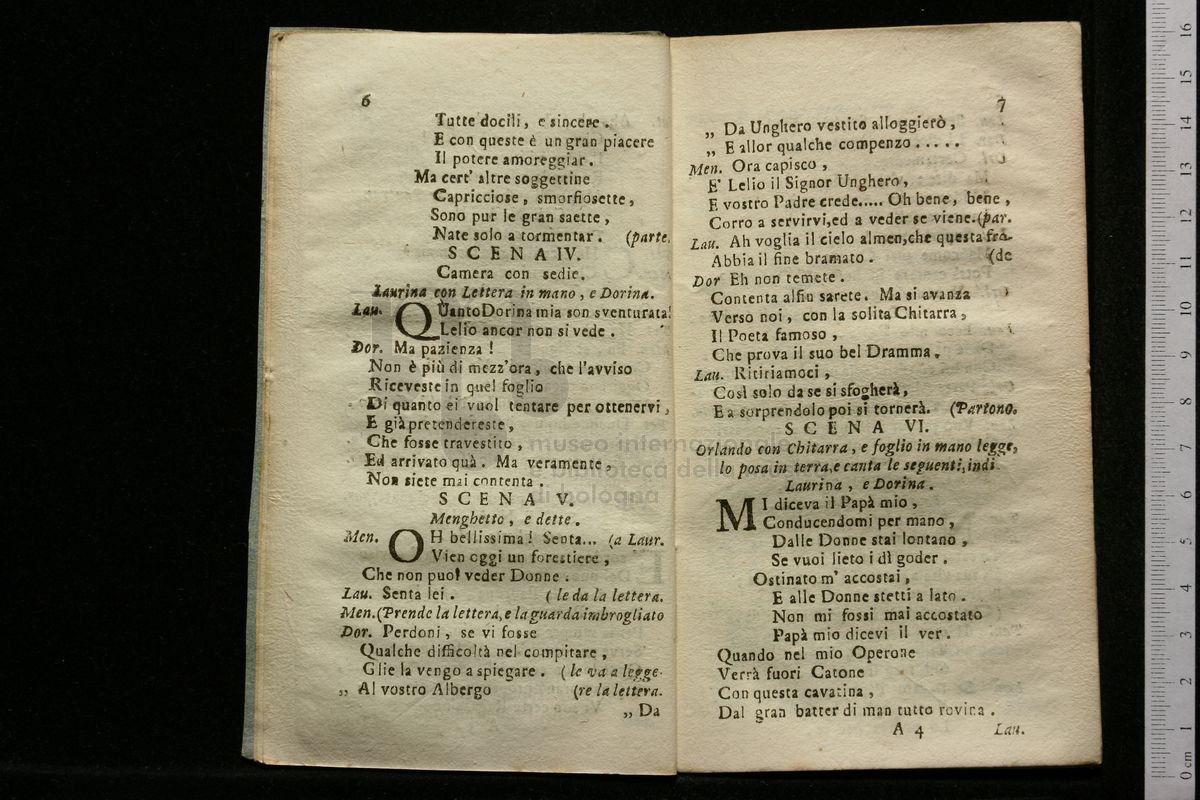 6
Tutte docili, e sincere.
E con queste è un gran piacere
Il potere amoreggiar.
Ma cert' altre soggettine
Capricciose, smorfiosette,
Sono pur le gran saette,
Nate solo a tormentar. (parte.
SCENA IV.
Camera con sedie.
Laurina con Lettera in mano, e Dorina.
Lau. QUanto Dorina mia son sventurata!
Lelio ancor non si vede.
Dor. Ma pazienza!
Non è più di mezz'ora, che l'avviso
Riceveste in quel foglio
Di quanto ei vuol tentare per ottenervi,
E già pretendereste,
Che fosse travestito,
Ed arrivato quà. Ma veramente,
Non siete mai contenta.
SCENA V.
Menghetto, e dette.
Men. OH bellissima! Senta... (a Laur.
Vien oggi un forestiere,
Che non puol veder Donne.
Lau. Senta lei. (le da la lettera.
Men. (Prende la lettera, e la guarda imbrogliato
Dor. Perdoni, se vi fosse
Qualche difficoltà nel compitare,
Glie la vengo a spiegare. (le va a legge-
„ Al vostro Albergo (re la lettera.
„ Da
7
„ Da Unghero vestito alloggierò,
„ E allor qualche compenzo.....
Men. Ora capisco,
E' Lelio il Signor Unghero,
E vostro Padre crede..... Oh bene, bene,
Corro a servirvi, ed a veder se viene. (par.
Lau. Ah voglia il cielo almen, che questa fro-
Abbia il fine bramato. (de
Dor Eh non temete.
Contenta alfin sarete. Ma si avanza
Verso noi, con la solita Chitarra,
Il Poeta famoso,
Che prova il suo bel Dramma.
Lau. Ritiriamoci,
Così solo da se si sfogherà,
E a sorprendolo poi si tornerà. (Partono.
SCENA VI.
Orlando con Chitarra, e foglio in mano legge,
lo posa in terra, e canta le seguenti, indi
Laurina, e Dorina.
MI diceva il Papà mio,
Conducendomi per mano,
Dalle Donne stai lontano,
Se vuoi lieto i dì goder.
Ostinato m' accostai,
E alle Donne stetti a lato.
Non mi fossi mai accostato
Papà mio dicevi il ver.
Quando nel mio Operone
Verrà fuori Catone
Con questa cavatina,
Dal gran batter di man tutto rovina.
A 4 Lau.
museo internazionale
biblioteca della
di bologna
0 cm 1 2 3 4 5 6 7 8 9 10 11 12 13 14 15 16